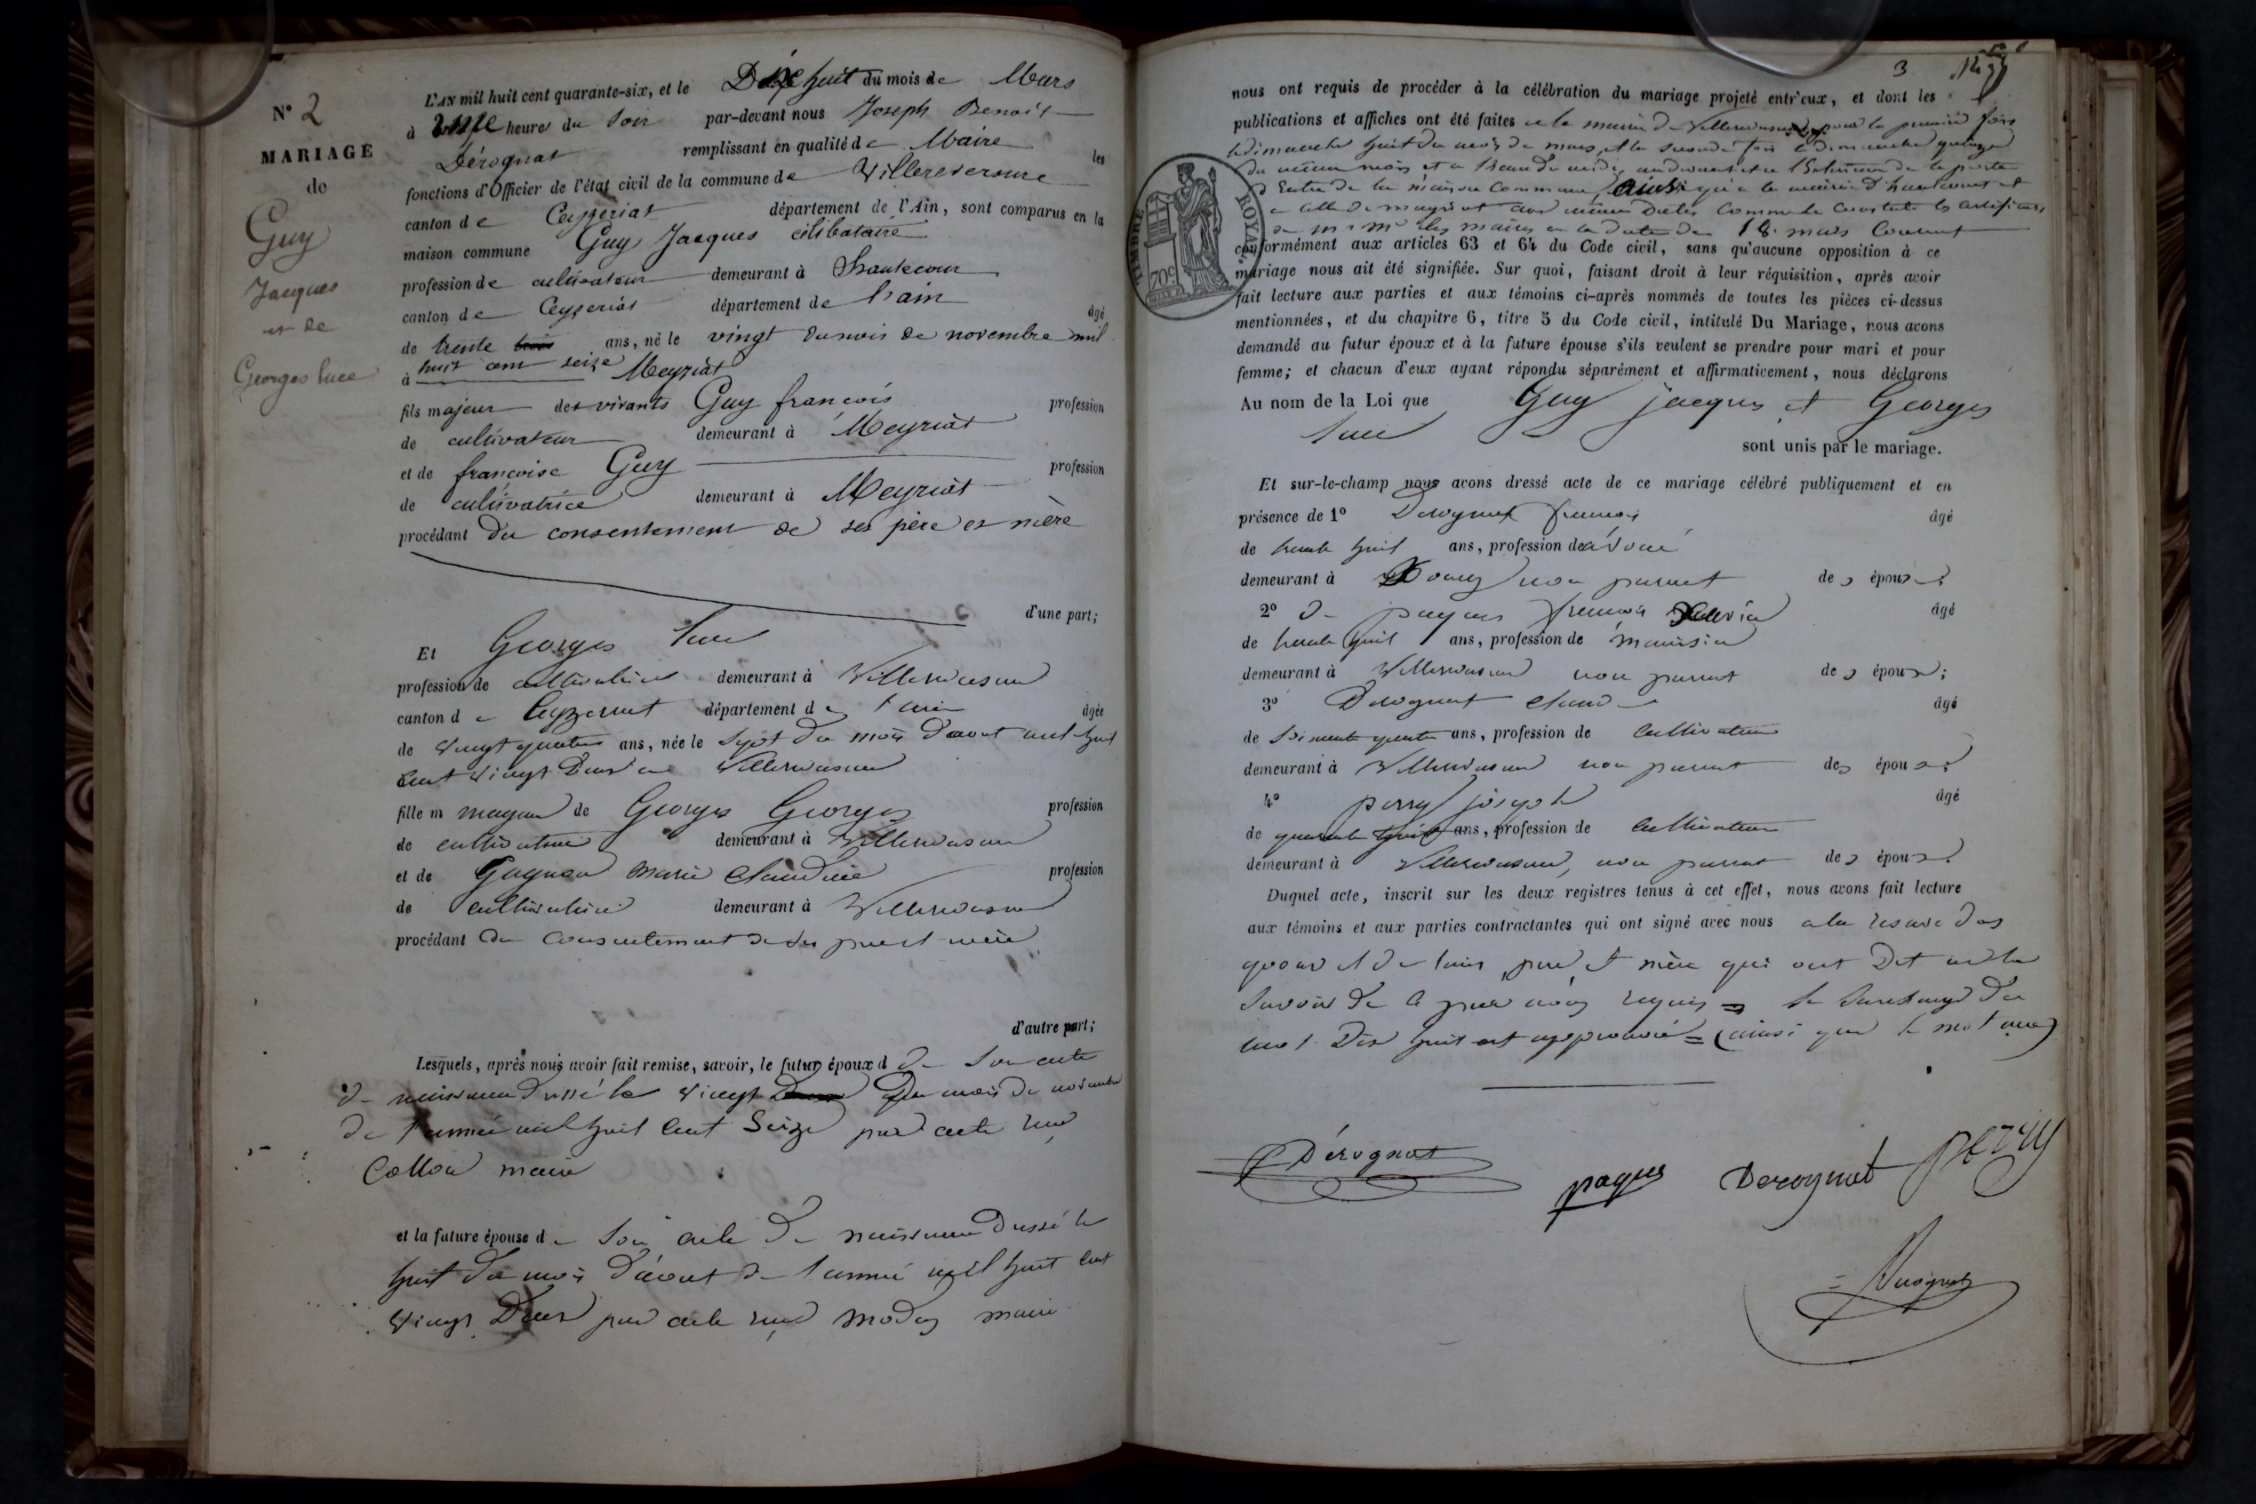 N° 2
MARIAGE
de
Guy
Jacques
et de
Georges luce
L'AN mil huit cent quarante-six, et le Dix huit du mois de Mars
à heures du soir par-devant nous Joseph Benoit
Dérognat remplissant en qualité de Maire les
fonctions d'Officier de l'état civil de la commune de Villereversure
canton de Ceyzeriat département de l'Ain, sont comparus en la
maison commune Guy Jacques célibataire
profession de cultivateur demeurant à hautecour
canton de Ceyzeriat département de l'ain âgé
de trente ans, né le vingt du mois de novembre mil
huit cent seize
à Meyriat
fils majeur des vivants Guy françois profession
de cultivateur demeurant à Meyriat
et de françoise Guy profession
de cultivatrice demeurant à Meyriat
procédant du consentement de ses père et mère
d'une part;
Et Georges luce
profession de cultivatrice demeurant à Villereversure
canton de Ceyzeriat département de l'ain âgée
de vingt quatre ans, née le sept du mois d'aout mil huit
cent vingt deux a Villereversure
fille majeure de Georges Georges profession
de cultivateur demeurant à Villereversure
et de Gagneau marie Claudine profession
de cultivatrice demeurant à Villereversure
procédant du consentement de ses père et mère
d'autre part;
Lesquels, après nous avoir fait remise, savoir, le futur époux d de son acte
de naissance dressé le vingt du mois de novembre
de l'année mil huit cent seize par acte reçu
maire
et la future épouse de son acte de naissance dressé le
huit du mois d'aout de l'année mil huit cent
vingt deux par acte reçu maire
3
nous ont requis de procéder à la célébration du mariage projeté entr'eux, et dont les
publications et affiches ont été faites a la mairie de Villereversure pour la première fois
le dimanche huit du mois de mars et la seconde fois le dimanche quinze
du même mois et a l'heure de midi au devant et a l'extérieur de la porte
d'Entrée de la maison commune ainsi qu'a la mairie d'hautecourt et
a celle de meyriat aux mêmes dates comme le constate les certificats
de m.m. les maires en la date du 18 mars courant
conformément aux articles 63 et 64 du Code civil, sans qu'aucune opposition à ce
mariage nous ait été signifiée. Sur quoi, faisant droit à leur réquisition, après avoir
fait lecture aux parties et aux témoins ci-après nommés de toutes les pièces ci-dessus
mentionnées, et du chapitre 6, titre 5 du Code civil, intitulé Du Mariage, nous avons
demandé au futur époux et à la future épouse s'ils veulent se prendre pour mari et pour
femme; et chacun d'eux ayant répondu séparément et affirmativement, nous déclarons
Au nom de la Loi que Guy jacques et Georges
luce
sont unis par le mariage.
Et sur-le-champ nous avons dressé acte de ce mariage célébré publiquement et en
présence de 1° Derognat francois âgé
de trente huit ans, profession de avoué
demeurant à Bourg non parent des époux;
2° de paques francois âgé
de trente huit ans, profession de
demeurant à Villereversure non parent des époux;
3° Derognat claude âgé
de soixante quatre ans, profession de cultivateur
demeurant à Villereversure non parent des époux;
4° perry joseph âgé
de quarante trois ans, profession de cultivateur
demeurant à Villereversure, non parent des époux.
Duquel acte, inscrit sur les deux registres tenus à cet effet, nous avons fait lecture
aux témoins et aux parties contractantes qui ont signé avec nous a la reserve des
époux et de leurs père et mère qui ont dit ne le
savoir de ce par nous requis = la surcharge du
mot Dix huit est approuvée = (ainsi que le mot onze)
Dérognat
paques
Derognat
perry
Derognat
TIMBRE ROYAL
70c